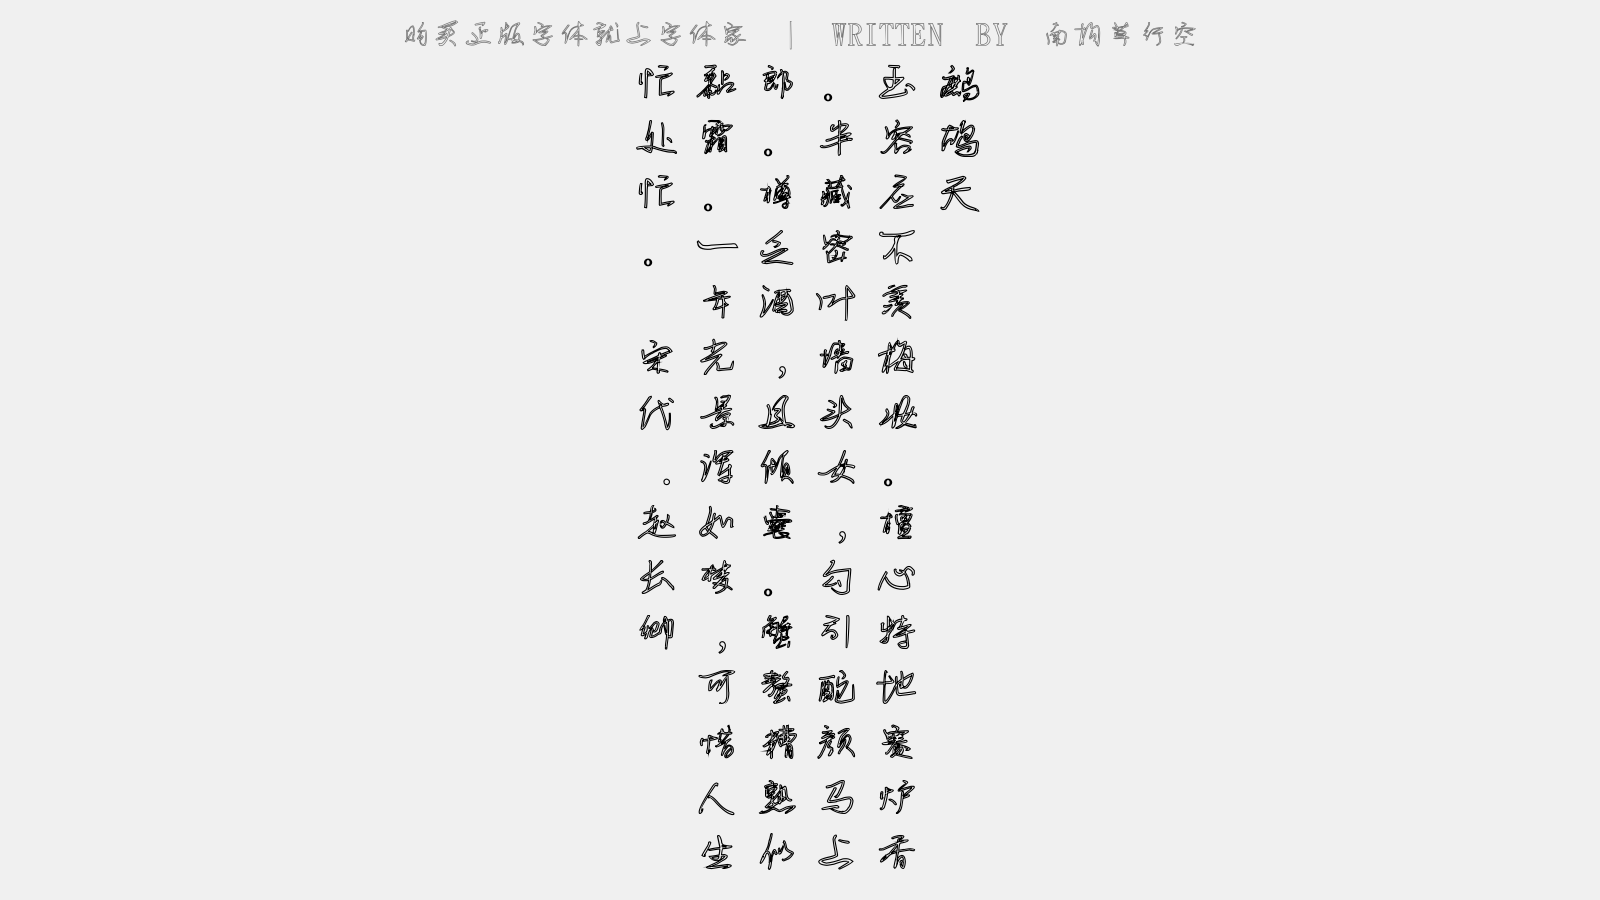 购买正版字体就上字体家 | WRITTEN BY 南构草行空
鹧鸪天
玉容应不羡梅妆。檀心特地赛炉香
。半藏密叶墙头女,勾引酡颜马上
郎。樽乏酒,且倾囊。蟹螯糟熟似
黏霜。一年光景浑如梦,可惜人生
忙处忙。
宋代。赵长卿